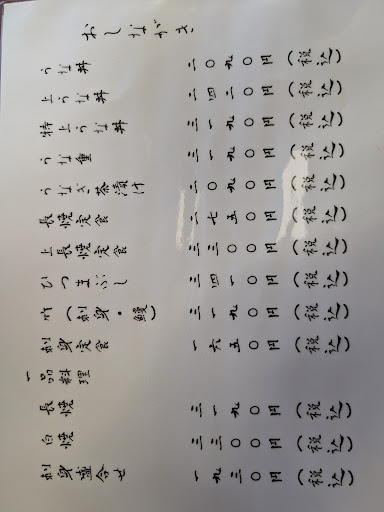 おしながき
うな丼 二〇九〇円(税込)
上うな丼 二四二〇円(税込)
特上うな丼 三一九〇円(税込)
うな重 三一九〇円(税込)
うなぎ茶漬け 二〇九〇円(税込)
長焼定食 二七五〇円(税込)
上長焼定食 三三〇〇円(税込)
ひつまぶし 三四一〇円(税込)
竹(刺身・鰻) 三一九〇円(税込)
刺身定食 一六五〇円(税込)
一品料理
長焼 三一九〇円(税込)
白焼 三三〇〇円(税込)
刺身盛合せ 一九三〇円(税込)